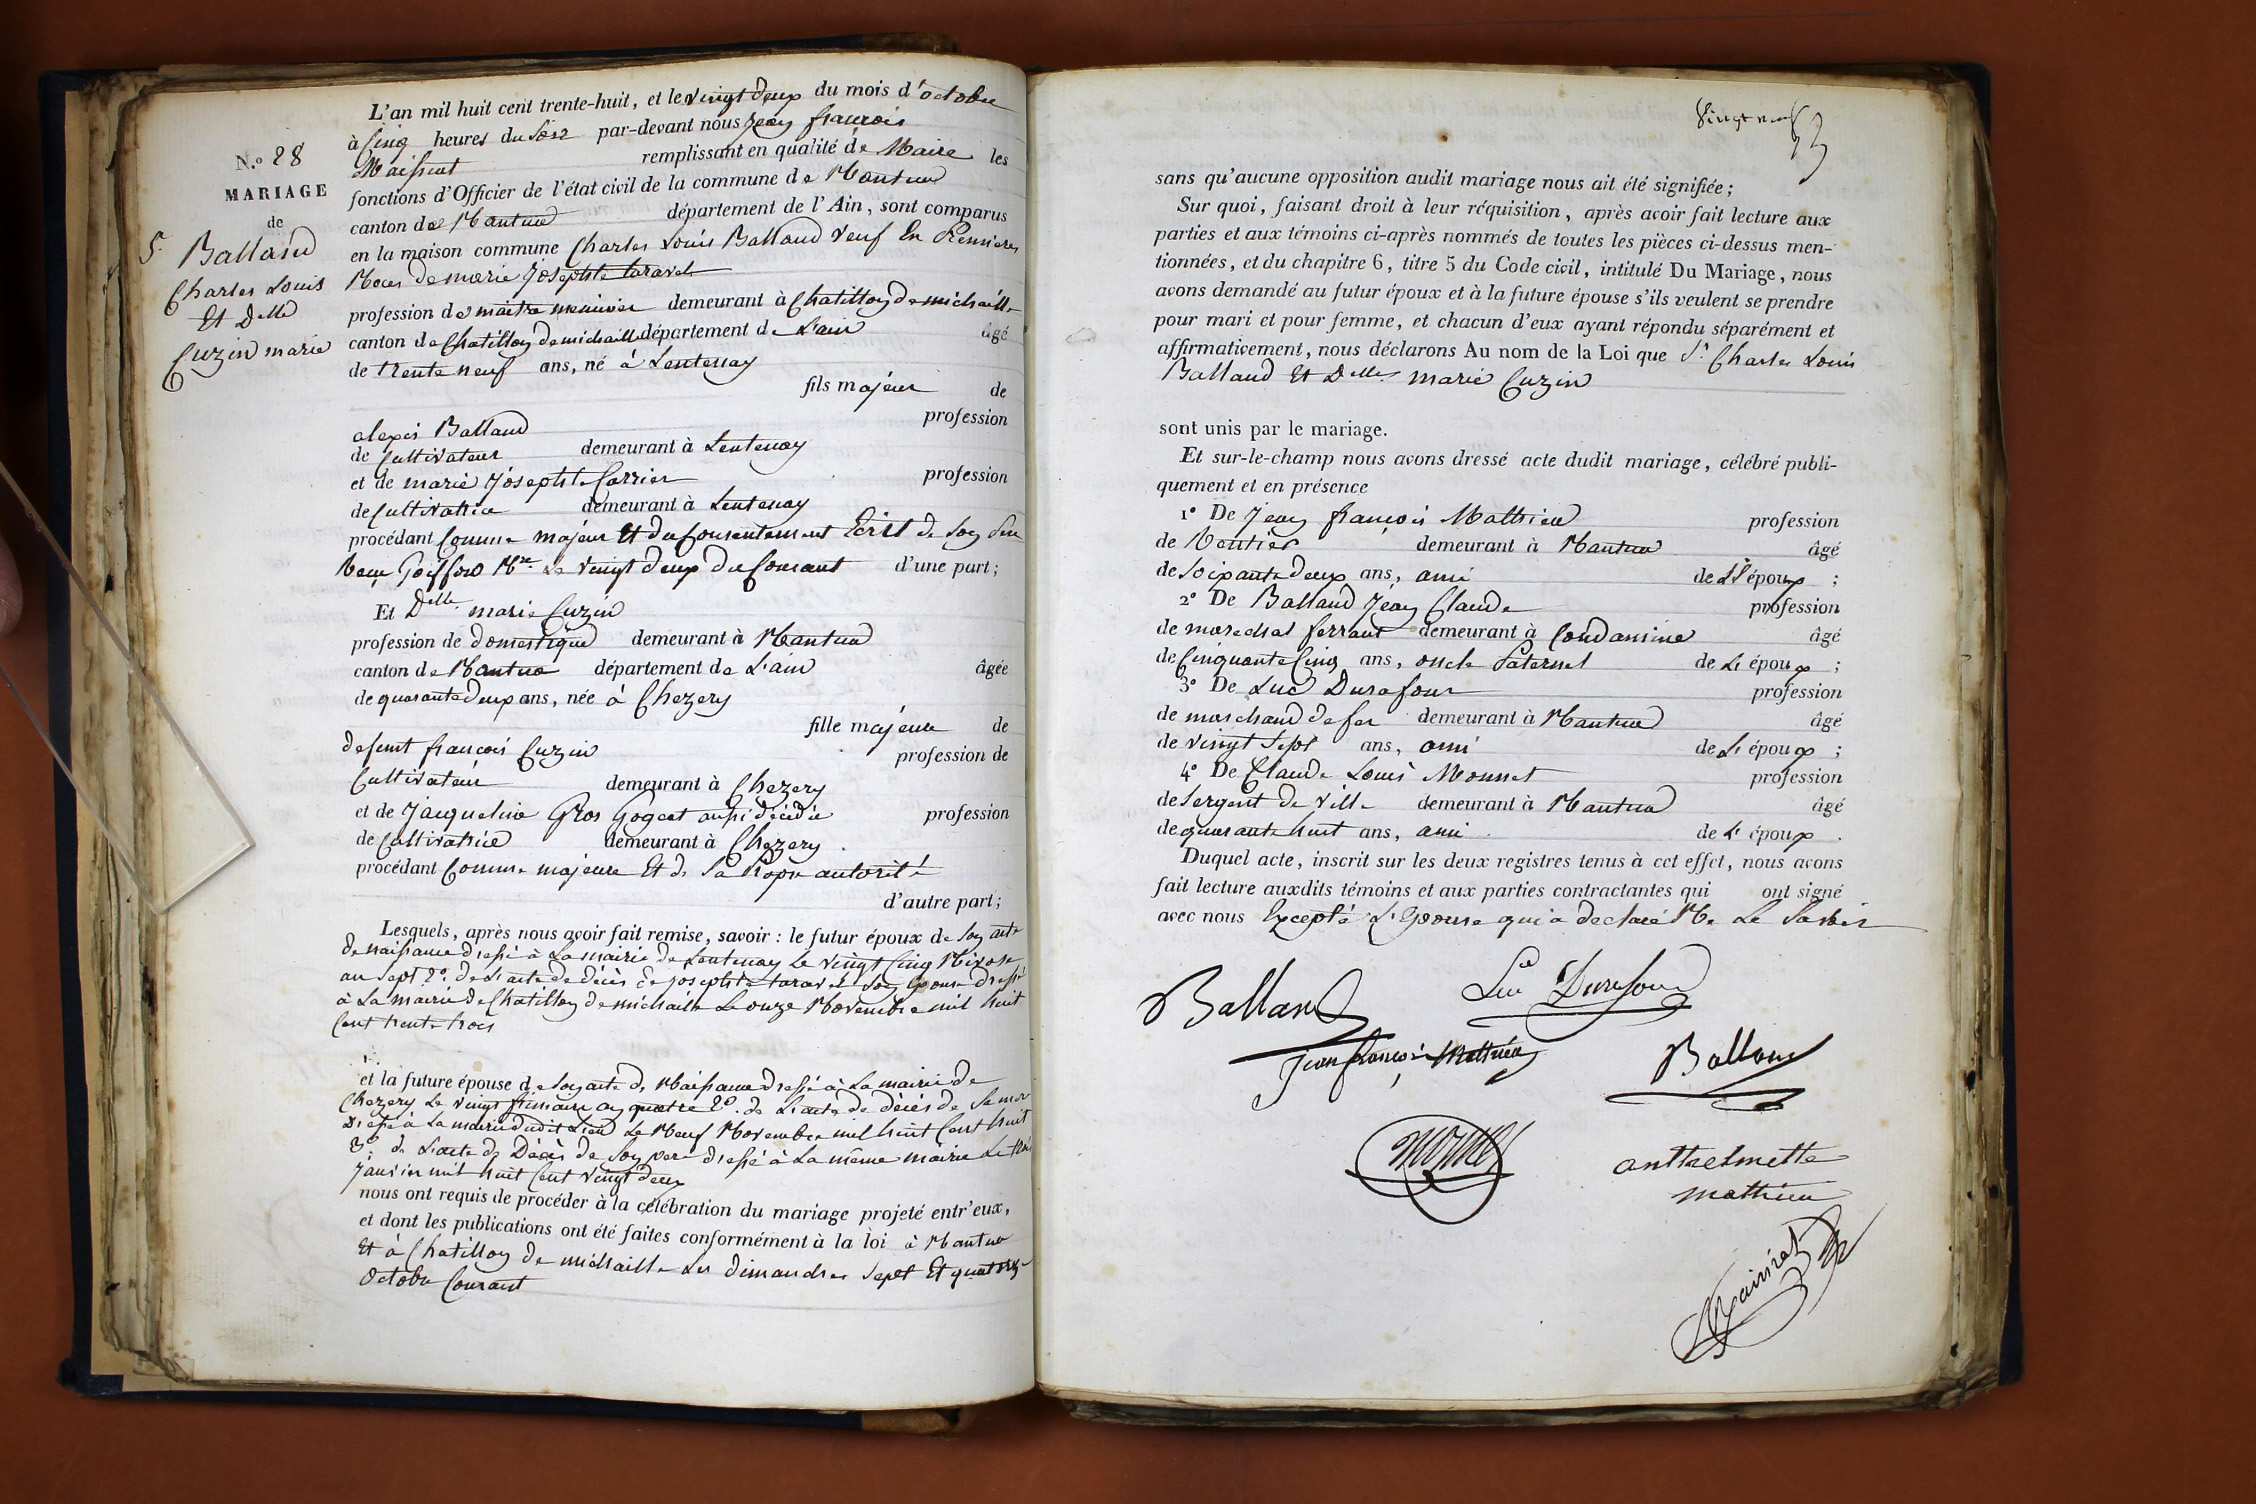 L'an mil huit cent trente-huit, et le vingt deux du mois d'octobre
à Cinq heures du Soir par-devant nous Jean françois
remplissant en qualité de Maire les
fonctions d'Officier de l'état civil de la commune de Nantua
canton de Nantua département de l'Ain, sont comparus
en la maison commune Charles Louis Balland veuf En Premieres
Noces de marie Josephte taravel
profession de maitre meunier demeurant à Chatillon de michaille
canton de Chatillon de michaille département de L'ain âgé
de trente neuf ans, né à Lentenay
fils majeur de
alexis Balland profession
de Cultivateur demeurant à Lentenay
et de marie Josephte Carrier profession
de Cultivatrice demeurant à Lentenay
procédant Comme majeur Et du Consentement Ecrit de Son Pere
Le vingt deux du Courant d'une part;
Et Delle marie Cuzin
profession de domestique demeurant à Nantua
canton de Nantua département de L'ain âgée
de quarante deux ans, née à Chezery
fille majeure de
defunt françois Cuzin profession de
Cultivateur demeurant à Chezery
et de Jacqueline Gros Gogeat aussi décédée profession
de Cultivatrice demeurant à Chezery
procédant Comme majeure Et de Sa Propre autorité
d'autre part;
Lesquels, après nous avoir fait remise, savoir : le futur époux de Son acte
de naissance dressé à La mairie de Lentenay Le vingt Cinq Nivose
an sept 2o. de L'acte de décès de Josephte taravel Son Epouse dressé
à La mairie de Chatillon de michaille Le onze Novembre mil huit
Cent trente trois
et la future épouse de Son acte de Naissance dressé à La mairie de
Chezery Le vingt frimaire an quatre 2o. de L'acte de décès de Sa mere
dressé à La mairie dudit Lieu Le Neuf Novembre mil huit Cent huit
3o. de L'acte de Décès de Son pere dressé à La même mairie Le trois
Janvier mil huit Cent vingt deux
nous ont requis de procéder à la célébration du mariage projeté entr'eux,
et dont les publications ont été faites conformément à la loi à Nantua
Et à Chatillon de michaille Les dimanches sept Et quatorze
Octobre Courant
N.o 28
MARIAGE
de
S. Balland
Charles Louis
Et Delle
Cuzin marie
Vingt neuf
53
sans qu'aucune opposition audit mariage nous ait été signifiée;
Sur quoi, faisant droit à leur réquisition, après avoir fait lecture aux
parties et aux témoins ci-après nommés de toutes les pièces ci-dessus men-
tionnées, et du chapitre 6, titre 5 du Code civil, intitulé Du Mariage, nous
avons demandé au futur époux et à la future épouse s'ils veulent se prendre
pour mari et pour femme, et chacun d'eux ayant répondu séparément et
affirmativement, nous déclarons Au nom de la Loi que Sr. Charles Louis
Balland Et Delle. marie Cuzin
sont unis par le mariage.
Et sur-le-champ nous avons dressé acte dudit mariage, célébré publi-
quement et en présence
1o De Jean françois Mathieu profession
de Rentier demeurant à Nantua âgé
de Soixante deux ans, ami de L'époux ;
2o De Balland Jean Claude profession
de marechal ferrant demeurant à Condamine âgé
de Cinquante Cinq ans, oncle Paternel de L'époux ;
3o De Luc Durafour profession
de marchand de fer demeurant à Nantua âgé
de vingt Sept ans, ami de L'époux ;
4o De Claude Louis Monnet profession
de Sergent de ville demeurant à Nantua âgé
de quarante huit ans, ami de L'époux .
Duquel acte, inscrit sur les deux registres tenus à cet effet, nous avons
fait lecture auxdits témoins et aux parties contractantes qui ont signé
avec nous Excepté L'Epouse qui a declaré Ne Le Savoir
Balland
Luc Durafour
Jean françois Mathieu
Balland
monnet
anthelmette
mathieu